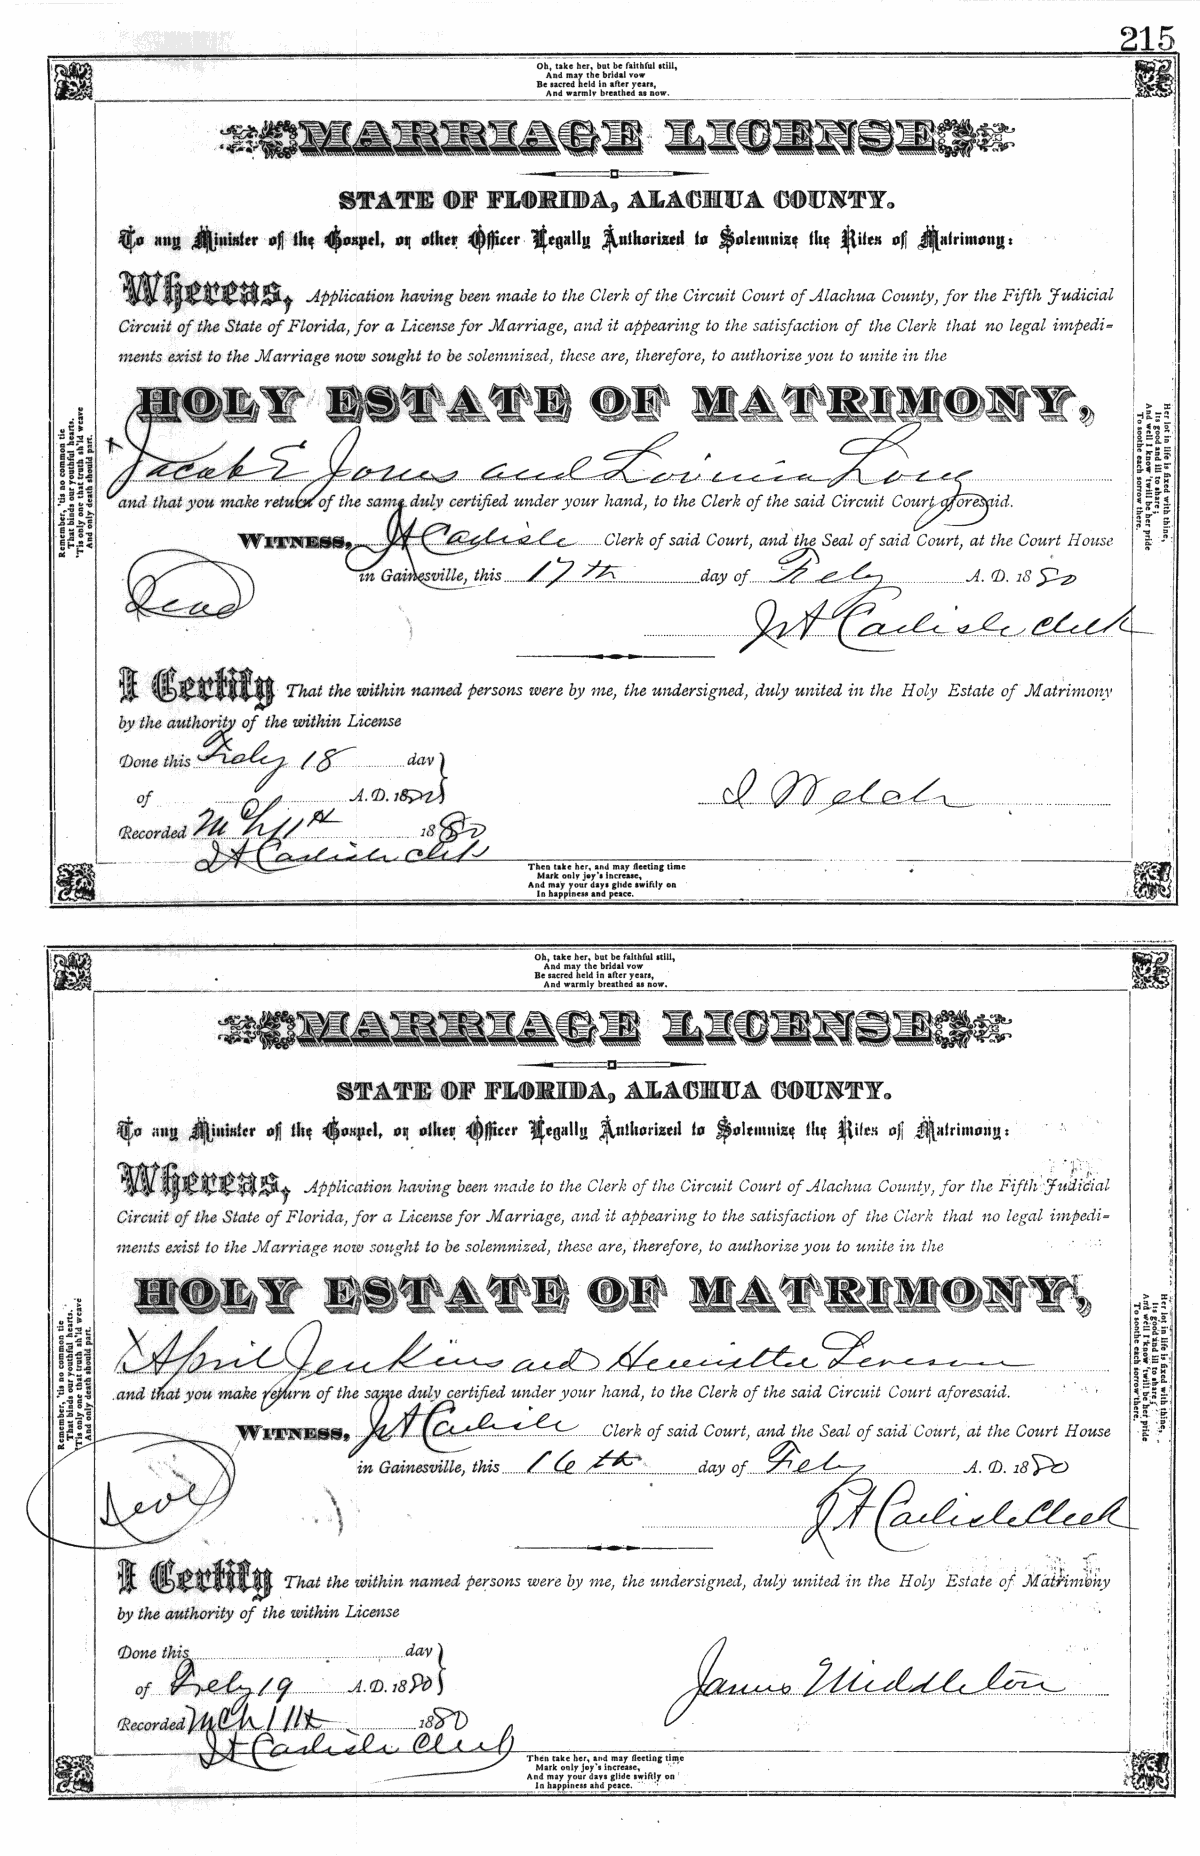 215
Oh, take her, but be faithful still,
And may the bridal vow
Be sacred held in after years,
And warmly breathed as now.
MARRIAGE LICENSE
STATE OF FLORIDA, ALACHUA COUNTY.
To any Minister of the Gospel, or other Officer Legally Authorized to Solemnize the Rites of Matrimony:
Whereas, Application having been made to the Clerk of the Circuit Court of Alachua County, for the Fifth Judicial
Circuit of the State of Florida, for a License for Marriage, and it appearing to the satisfaction of the Clerk that no legal impedi-
ments exist to the Marriage now sought to be solemnized, these are, therefore, to authorize you to unite in the
HOLY ESTATE OF MATRIMONY,
Jacob E Jones and Lovinia Long
and that you make return of the same duly certified under your hand, to the Clerk of the said Circuit Court aforesaid.
WITNESS, J A Carlisle Clerk of said Court, and the Seal of said Court, at the Court House
in Gainesville, this 17th day of Feby A. D. 1880
J A Carlisle Clerk
I Certify That the within named persons were by me, the undersigned, duly united in the Holy Estate of Matrimony
by the authority of the within License
Done this Feby 18 day
of A. D. 1880
I Welch
Recorded Mch 11th 1880
J A Carlisle Clerk
Then take her, and may fleeting time
Mark only joy's increase,
And may your days glide swiftly on
In happiness and peace.
Remember, 'tis no common tie
That binds our youthful hearts,
'Tis only one that truth sh'ld weave
And only death should part.
Her lot in life is fixed with thine,
Its good and ill to share;
And well I know 'twill be her pride
To soothe each sorrow there.
Oh, take her, but be faithful still,
And may the bridal vow
Be sacred held in after years,
And warmly breathed as now.
MARRIAGE LICENSE
STATE OF FLORIDA, ALACHUA COUNTY.
To any Minister of the Gospel, or other Officer Legally Authorized to Solemnize the Rites of Matrimony:
Whereas, Application having been made to the Clerk of the Circuit Court of Alachua County, for the Fifth Judicial
Circuit of the State of Florida, for a License for Marriage, and it appearing to the satisfaction of the Clerk that no legal impedi-
ments exist to the Marriage now sought to be solemnized, these are, therefore, to authorize you to unite in the
HOLY ESTATE OF MATRIMONY,
April Jenkins and Henrietta Leveson
and that you make return of the same duly certified under your hand, to the Clerk of the said Circuit Court aforesaid.
WITNESS, J A Carlisle Clerk of said Court, and the Seal of said Court, at the Court House
in Gainesville, this 16th day of Feby A. D. 1880
J A Carlisle Clerk
I Certify That the within named persons were by me, the undersigned, duly united in the Holy Estate of Matrimony
by the authority of the within License
Done this day
of Feby 19 A. D. 1880
James Middleton
Recorded Mch 11th 1880
J A Carlisle Clerk
Then take her, and may fleeting time
Mark only joy's increase,
And may your days glide swiftly on
In happiness and peace.
Remember, 'tis no common tie
That binds our youthful hearts,
'Tis only one that truth sh'ld weave
And only death should part.
Her lot in life is fixed with thine,
Its good and ill to share;
And well I know 'twill be her pride
To soothe each sorrow there.